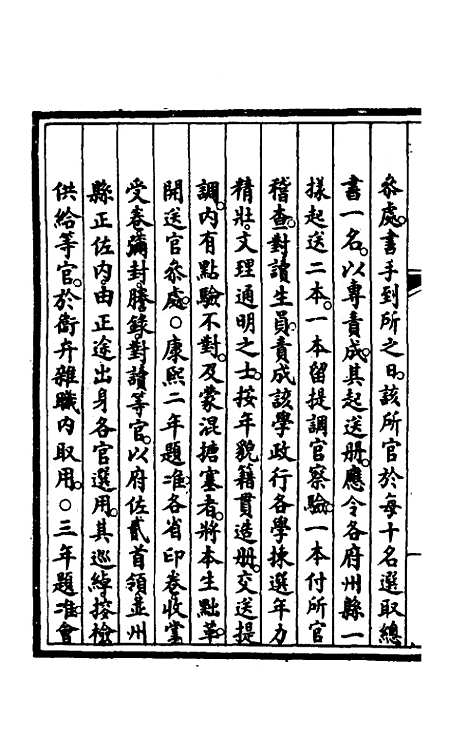 叅處。書手到所之日。該所官於每十名選取總
書一名。以專責成。其起送册。應令各府州縣一
様起送二本。一本留提調官察驗。一本付所官
稽查。對讀生員。責成該學政行各學揀選年力
精壯。文理通明之士。按年貌籍貫造册。交送提
調。內有點驗不對。及蒙混搪塞者。將本生黜革。
開送官叅處。○康熙二年題准。各省印卷收掌
受卷彌封謄錄對讀等官。以府佐貳首領並州
縣正佐內。由正途出身各官選用。其巡綽搜檢
供給等官。於衞弁雜職內取用。○三年題准。會